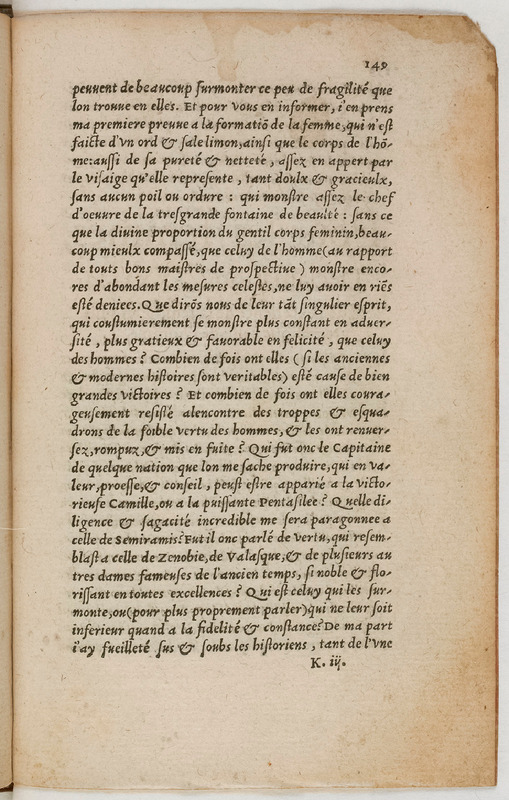 149
peuuent de beaucoup surmonter ce peu de fragilité que
lon trouue en elles. Et pour vous en informer, i'en prens
ma premiere preuue a la formatiō de la femme, qui n'est
faicte d'vn ord & sale limon, ainsi que le corps de l'hō-
me: aussi de sa pureté & netteté, assez en appert par
le visaige qu'elle represente, tant doulx & gracieulx,
sans aucun poil ou ordure : qui monstre assez le chef
d'oeuure de la tresgrande fontaine de beaulté : sans ce
que la diuine proportion du gentil corps feminin, beau-
coup mieulx compassé, que celuy de l'homme (au rapport
de touts bons maistres de prospectiue) monstre enco-
res d'abondant les mesures celestes, ne luy auoir en riēs
esté deniees. Que dirōs nous de leur tāt singulier esprit,
qui coustumierement se monstre plus constant en aduer-
sité, plus gratieux & fauorable en felicité, que celuy
des hommes ? Combien de fois ont elles (si les anciennes
& modernes histoires sont veritables) esté cause de bien
grandes victoires ? Et combien de fois ont elles coura-
geusement resisté alencontre des troppes & esqua-
drons de la foible vertu des hommes, & les ont renuer-
sez, rompuz, & mis en fuite ? Qui fut onc le Capitaine
de quelque nation que lon me sache produire, qui en va-
leur, proesse, & conseil, peust estre apparié a la victo-
rieuse Camille, ou a la puissante Pentasilee ? Quelle di-
ligence & sagacité incredible me sera paragonnee a
celle de Semiramis? Fut il onc parlé de vertu, qui resem-
blast a celle de Zenobie, de Valasque, & de plusieurs au
tres dames fameuses de l'ancien temps, si noble & flo-
rissant en toutes excellences ? Qui est celuy qui les sur-
monte, ou (pour plus proprement parler) qui ne leur soit
inferieur quand a la fidelité & constance? De ma part
i'ay fueilleté sus & soubs les historiens, tant de l'vne
K. iij.